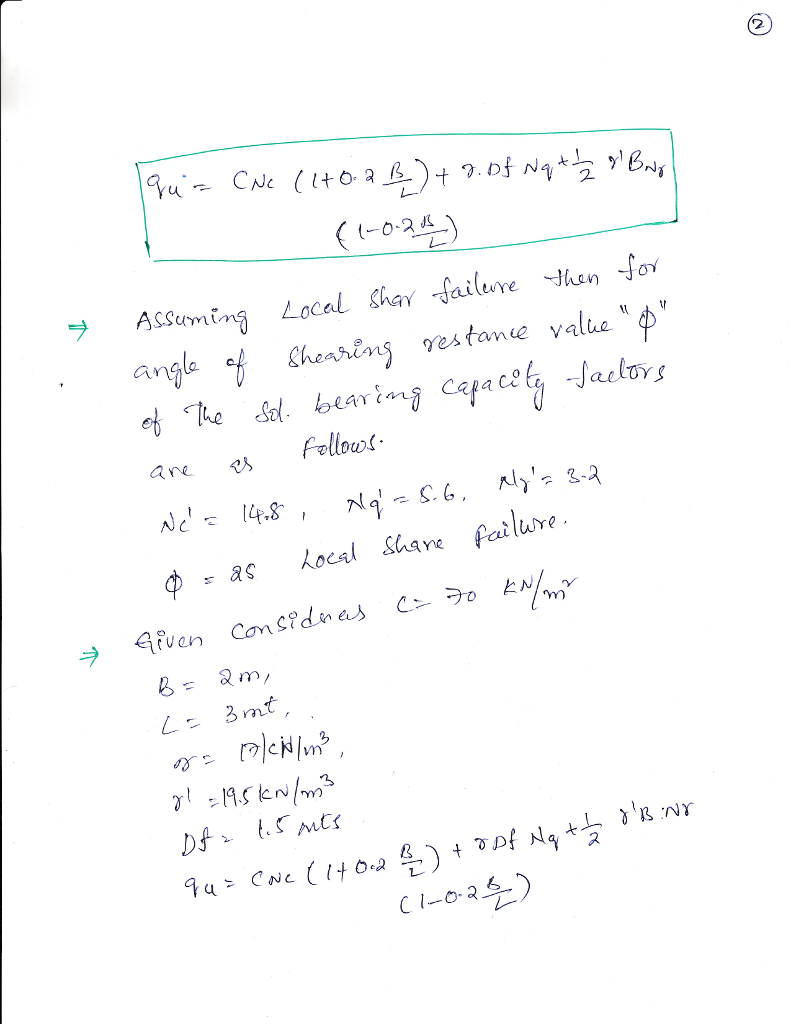 2
qu = CNc (1+0.2 B/L) + γ.Df Nq + 1/2 γ' BNγ
(1-0.2 B/L)
⇒ Assuming Local Shar failure then for
angle of Shearing restance value "ϕ"
of The Sol. bearing capacity factors
are as follows.
Nc' = 14.8, Nq' = 5.6, Nγ' = 3.2
ϕ = 25 Local Share failure.
⇒ Given considures C = 70 KN/m²
B = 2m,
L = 3mt,
γ = 17kN/m³,
γ' = 19.5 kN/m³
Df = 1.5 mts
qu = CNc (1+0.2 B/L) + γDf Nq + 1/2 γ'B.Nγ
(1-0.2 B/L)